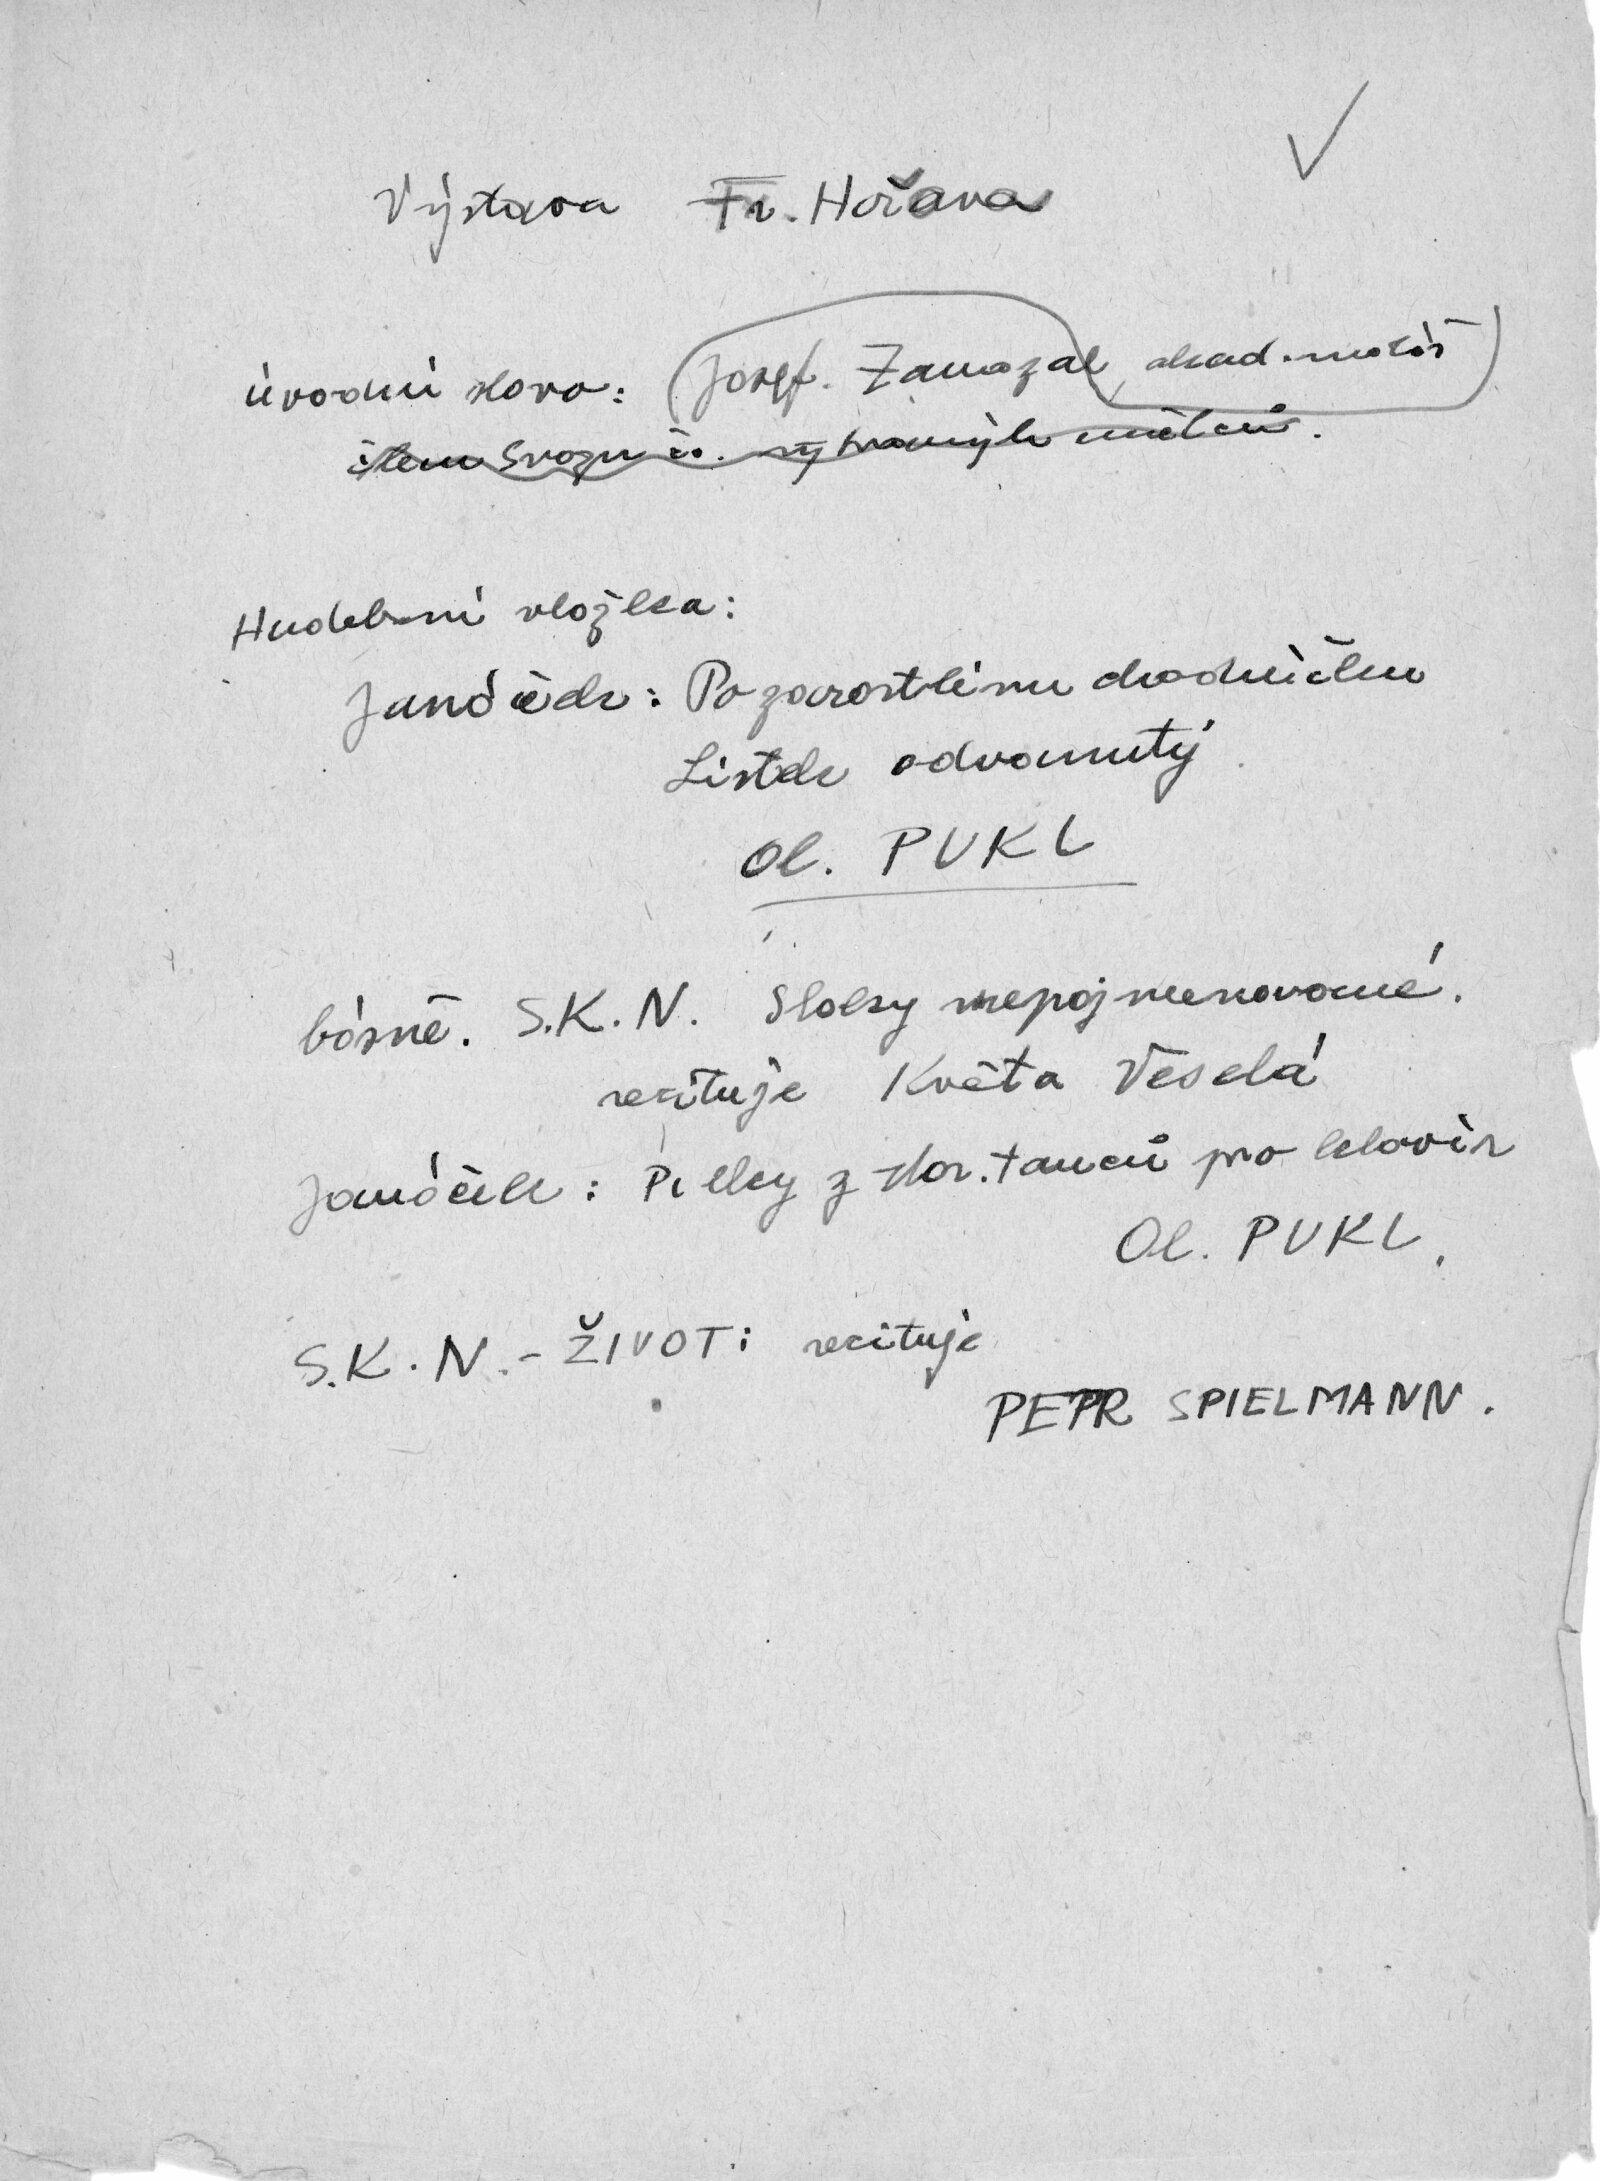 Výstava Fr. Hořava
úvodní slovo: Josef. Zamazal, akad. malíř
člen Svazu čs. výtvarných umělců.
Hudební vložka:
Janáček: Po zarostlém chodníčku
Lístek odvanutý
Ol. PUKL
básně. S.K.N. Sloky nepojmenované.
recituje Květa Veselá
Janáček: Pilky z hor. tanců pro klavír
Ol. PUKL.
S.K.N. - ŽIVOT: recituje
PETR SPIELMANN.